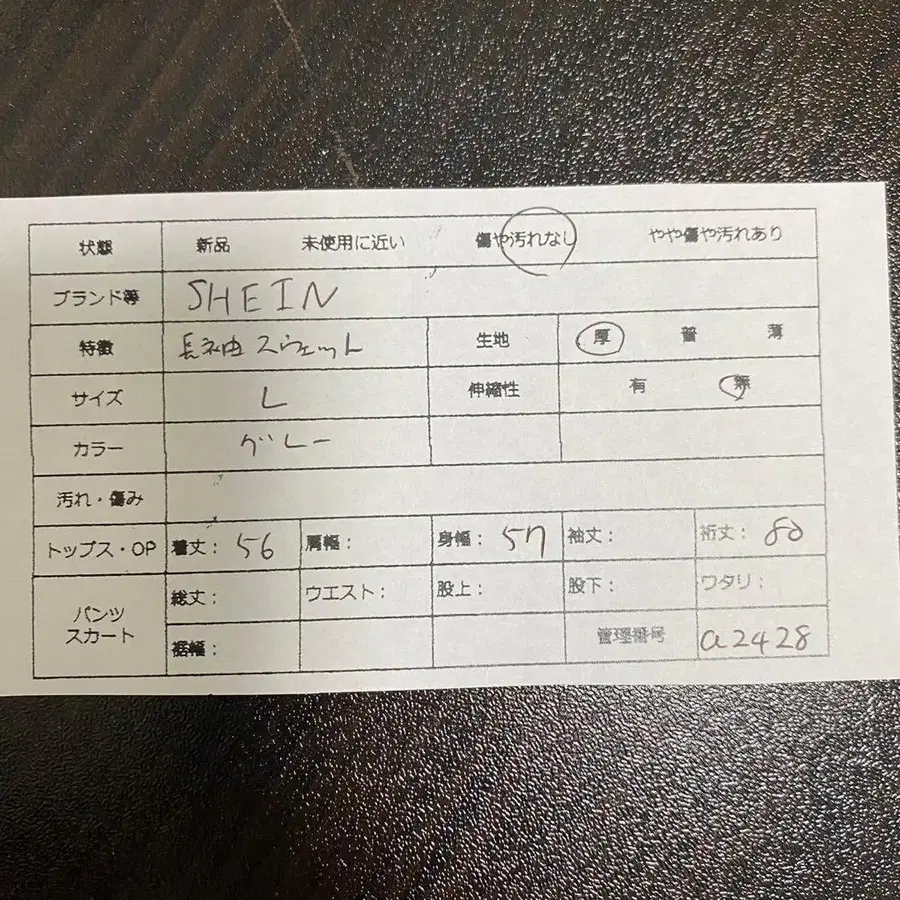 状態 新品 未使用に近い 傷や汚れなし やや傷や汚れあり
ブランド等 SHEIN
特徴 長袖スウェット 生地 厚 普 薄
サイズ L 伸縮性 有 無
カラー グレー
汚れ・傷み
トップス・OP 着丈: 56 肩幅: 身幅: 57 袖丈: 裄丈: 80
パンツ スカート 総丈: ウエスト: 股上: 股下: ワタリ:
裾幅: 管理番号 a2428